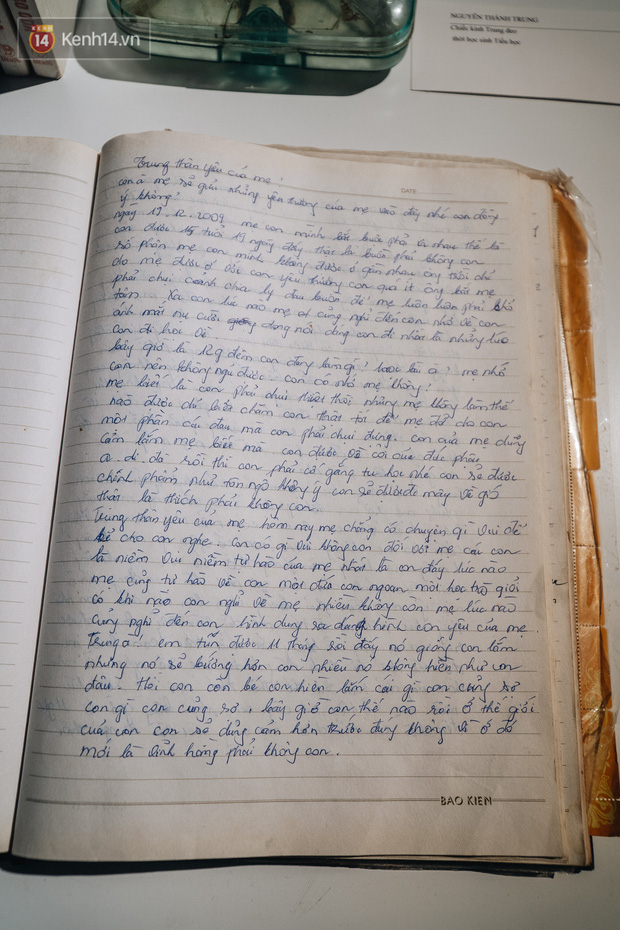 14
Kenh14.vn
NGUYỄN THÀNH TRUNG
Chiếc kính Trung đeo
thời học sinh Tiểu học
DATE
Trung thân yêu của mẹ!
con à mẹ sẽ gửi những yêu thương của mẹ vào đây nhé con đồng
ý không?
ngày 17.12.2009 mẹ con mình bắt buộc phải xa nhau thế là
con được 15 tuổi 19 ngày đấy thật là buồn phải không con
số phận mẹ con mình không được ở gần nhau ông trời chỉ
cho mẹ được ở với con yêu thương con quá ít ông bắt mẹ
phải chịu cảnh chia ly đau buồn để mẹ luôn luôn phải
tâm. Xa con lúc nào mẹ cũng nghĩ đến con nhớ về con
ánh mắt nụ cười giọng nói dáng con đi nhất là những lúc
con đi học về
bây giờ là 12g đêm con đang làm gì! mẹ nhớ
con nên không ngủ được con có nhớ mẹ không!
mẹ biết là con phải chịu thiệt thòi nhưng mẹ không làm thế
nào được chỉ biết chăm con thật tốt để mẹ đỡ cho con
một phần cái đau mà con phải chịu đựng. con của mẹ dũng
cảm lắm mẹ biết mà con được về cõi của đức phật
a di đà rồi thì con phải cố gắng tu học nhé con sẽ được
chính phẩm như tôn ngộ không ý con sẽ được đi mây về gió
thật là thích phải không con.
Trung thân yêu của mẹ hôm nay mẹ chẳng có chuyện gì vui để
kể cho con nghe. Con có gì vui không con đối với mẹ các con
là niềm vui niềm tự hào của mẹ nhất là con đấy lúc nào
mẹ cũng tự hào về con một đứa con ngoan một học trò giỏi
có khi nào con nghĩ về mẹ nhiều không còn mẹ lúc nào
cũng nghĩ đến con hình dung ra dáng hình con yêu của mẹ.
Trung à! em tũn được 11 tháng rồi đấy nó giống con lắm
nhưng nó sẽ bướng hơn con nhiều nó không hiền như con
đâu. Hồi con còn bé con hiền lắm cái gì con cũng sợ
con gì con cũng sợ, bây giờ con thế nào rồi ở thế giới
của con con sẽ dũng cảm hơn trước đúng không vì ở đó
mới là vĩnh hằng phải không con.
BAO KIEN